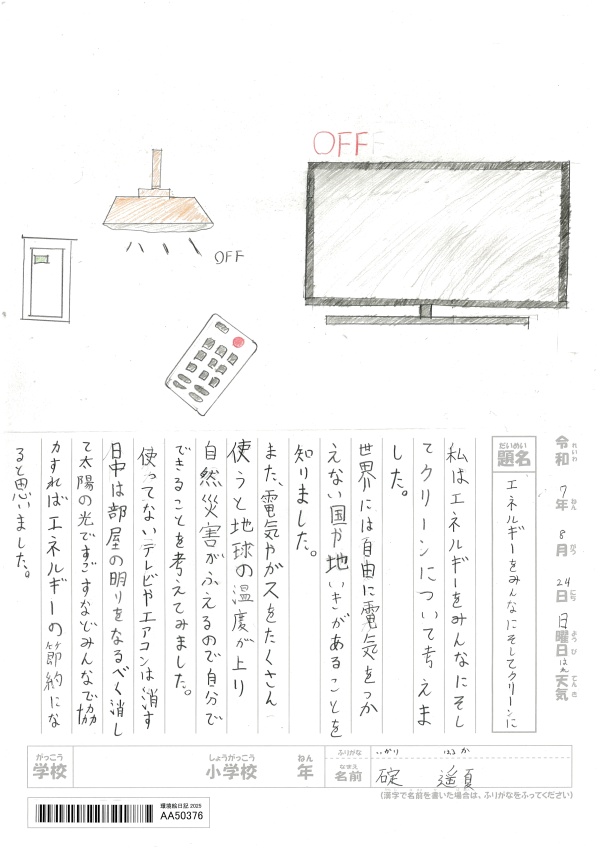 OFF
OFF
令和 7年 8月 24日 日曜日 天気 はれ
れいわ ねん がつ にち ようび てんき
だいめい
題名
エネルギーをみんなにそしてクリーンに
私はエネルギーをみんなにそし
てクリーンについて考えま
した。
世界には自由に電気をつか
えない国や地いきがあることを
知りました。
また、電気やガスをたくさん
使うと地球の温度が上り
自然災害がふえるので自分で
できることを考えてみました。
使ってないテレビやエアコンは消す
日中は部屋の明りをなるべく消し
て太陽の光ですごすなどみんなで協
力すればエネルギーの節約にな
ると思いました。
がっこう
学校
しょうがっこう
小学校
ねん
年
ふりがな いかり はるか
なまえ
名前 碇 遥夏
(漢字で名前を書いた場合は、ふりがなをふってください)
環境絵日記 2025
AA50376